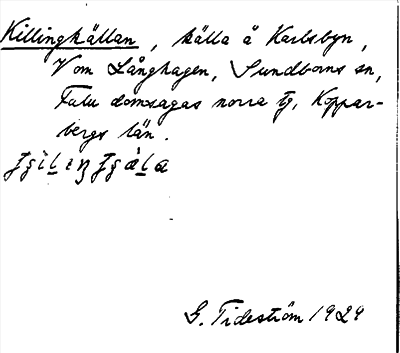 Killingkällan, källa å Karlsbyn,
V om Långhagen, Sundborns sn,
Falu domsagas norra tg, Koppar-
bergs län.
G. Tideström 1929